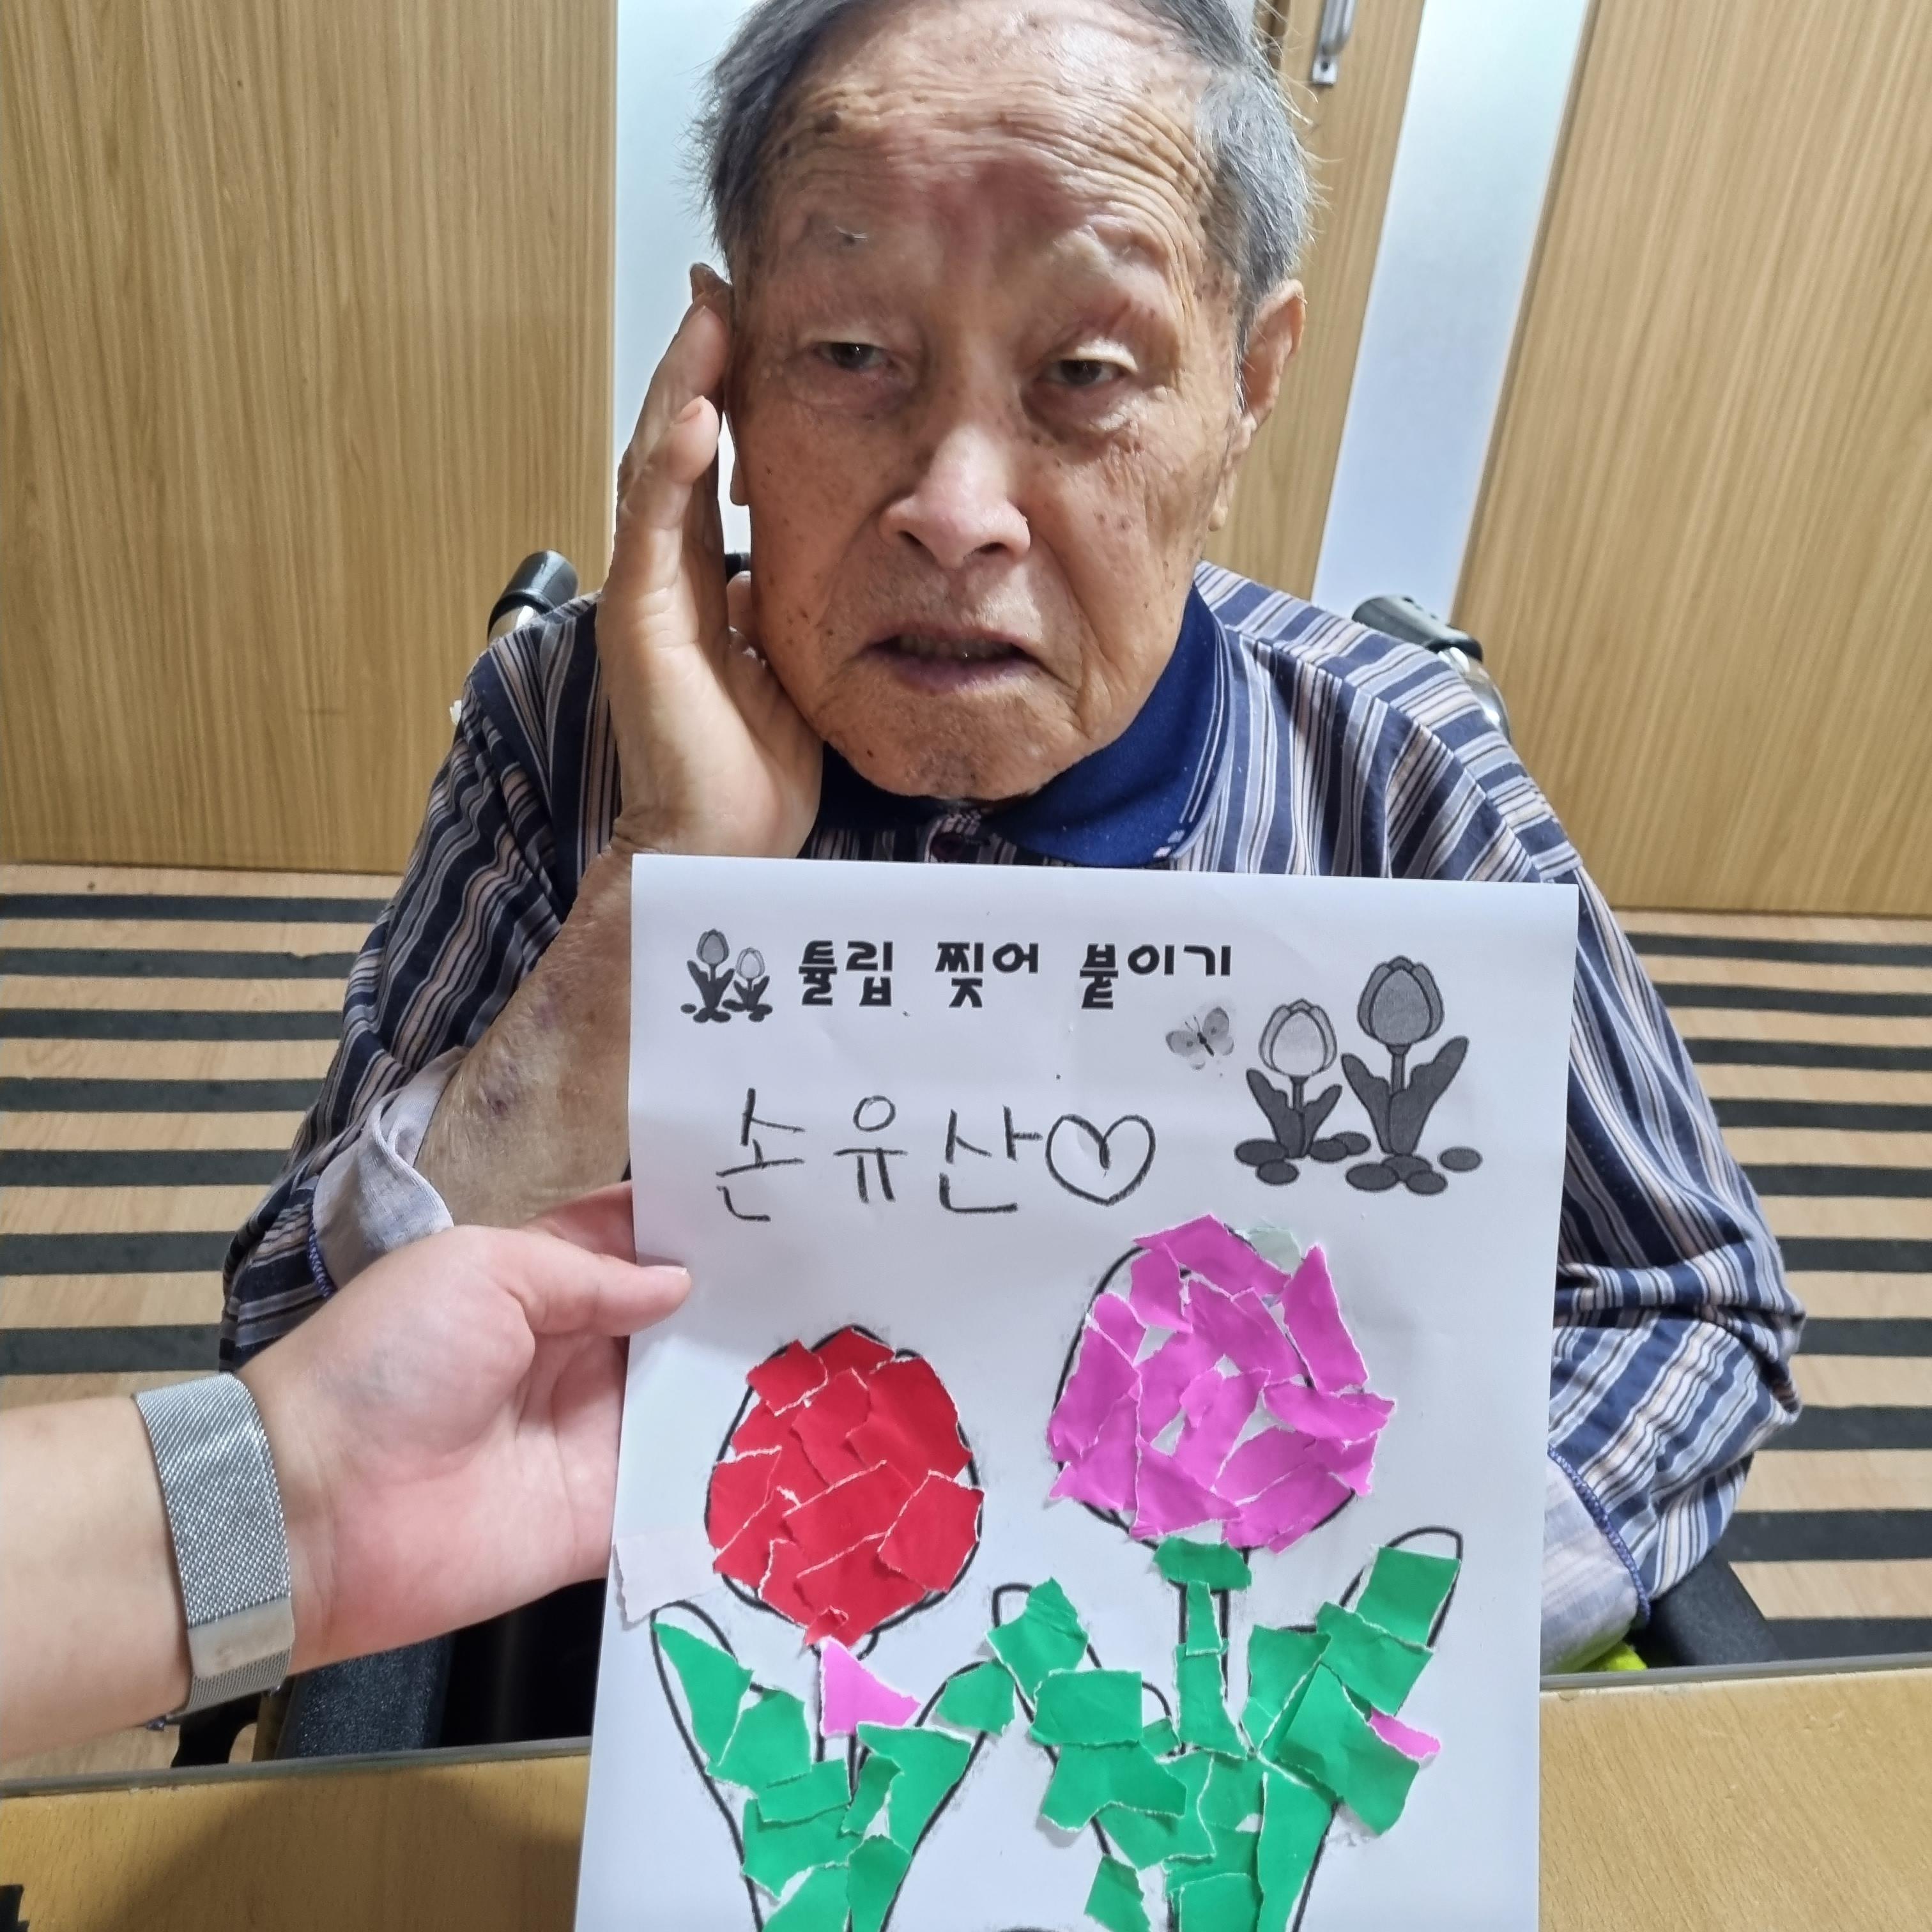 튤립 찢어 붙이기
손유산♡